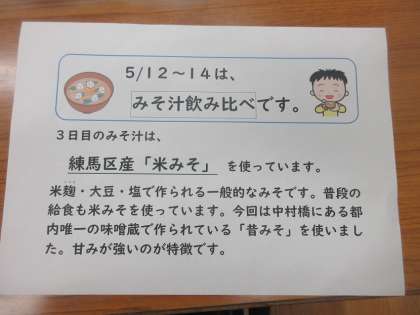 5/12～14は、
みそ汁飲み比べです。
3日目のみそ汁は、
練馬区産「米みそ」 を使っています。
米麹・大豆・塩で作られる一般的なみそです。普段の
給食も米みそを使っています。今回は中村橋にある都
内唯一の味噌蔵で作られている「昔みそ」を使いまし
た。甘みが強いのが特徴です。